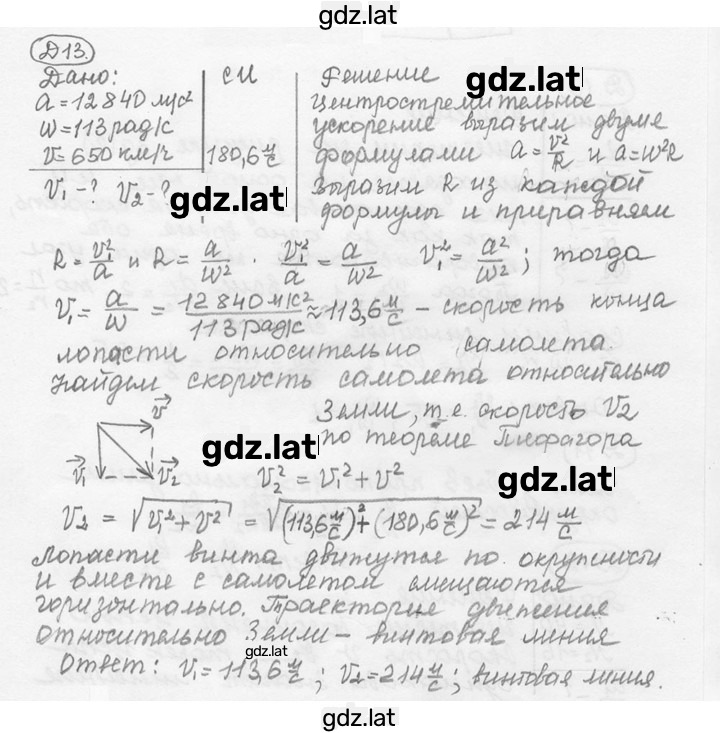 gdz.lat
Д13.
Дано: | СИ | Решение gdz.lat
a = 12 840 м/с² | Центростремительное
ω = 113 рад/с | ускорение выразим двумя
v = 650 км/ч | 180,6 м/с | формулами a = v²/R и a = ω²R
v₁ - ? v₂ - ? gdz.lat Выразим R из каждой
формулы и приравняем
R = v₁²/a и R = a/ω² . v₁²/a = a/ω² v₁² = a²/ω² ; тогда
v₁ = a/ω = 12 840 м/с² / 113 рад/с ≈ 113,6 м/с – скорость конца
лопасти относительно самолета.
Найдем скорость самолета относительно
v⃗ Земли, т.е. скорость v₂
gdz.lat по теореме Пифагора
v⃗₁ v⃗₂ v₂² = v₁² + v² gdz.lat
v₂ = √(v₁² + v²) = √((113,6 м/с)² + (180,6 м/с)²) = 214 м/с
Лопасти винта движутся по окружности
и вместе с самолетом смещаются
горизонтально. Траектория движения
относительно Земли – винтовая линия
gdz.lat
Ответ: v₁ = 113,6 м/с ; v₂ = 214 м/с ; винтовая линия.
gdz.lat